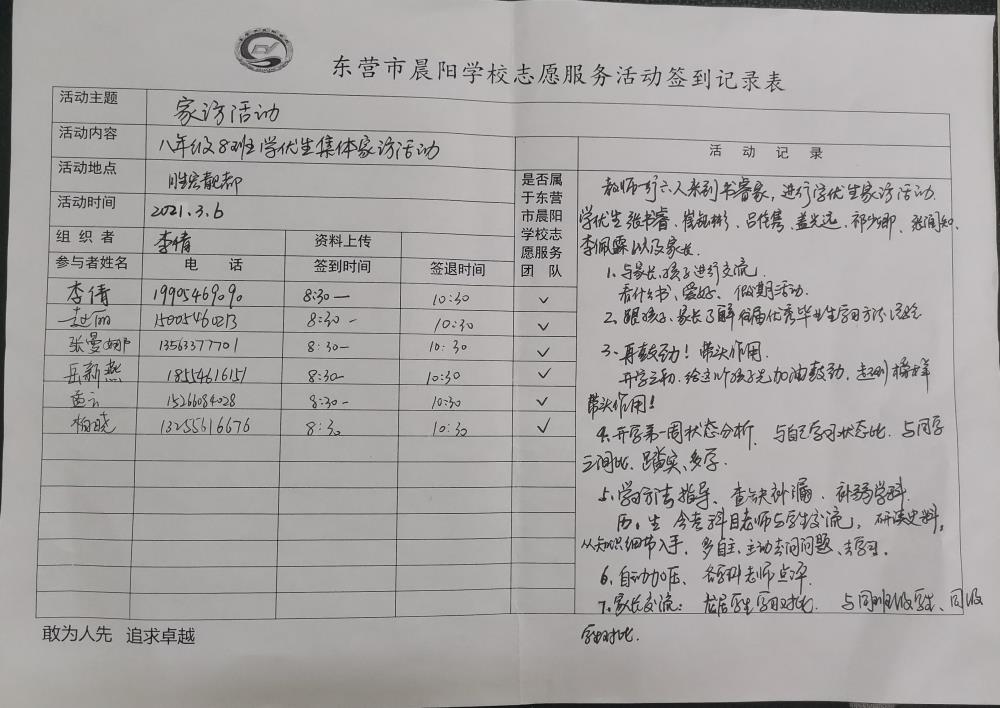 东营市晨阳学校志愿服务活动签到记录表
活动主题 家访活动
活动内容 八年级8班学优生集体家访活动
活动地点 胜宏靓都
活动时间 2021.3.6
组织者 李倩 资料上传
参与者姓名 电话 签到时间 签退时间 是否属于东营市晨阳学校志愿服务团队
李倩 19905469090 8:30— 10:30 ✓
赵丽 15005460213 8:30- 10:30 ✓
张曼娜 13563377701 8:30- 10:30 ✓
岳新燕 18554616151 8:30- 10:30 ✓
孟云 15266084028 8:30- 10:30 ✓
杨晓 13255616676 8:30 10:30 ✓
活动记录
教师一行六人来到书睿家,进行学优生家访活动.
学优生张书睿、崔 彬、吕佳隽、盖光远、祁少卿、张闻知、
李佩霖以及家长.
1.与家长、孩子进行交流.
看什么书、爱好、假期活动.
2.跟孩子、家长了解 届优秀毕业生学习方法、经验
3.再鼓劲!带头作用.
开学之初,给这 个孩子先加油鼓劲,起到榜样
带头作用!
4.开学第一周状态分析,与自己学习状态比,与同学
之间比,踏实、多学.
5.学习方法指导、查缺补漏、补弱学科.
历、生 科目老师与学生交流,研读史料,
从知识细节入手,多自主、主动去问问题、去学习.
6.自动加压、各学科老师点评.
7.家长交流: 学生学习对比. 与同班级学生、同级
学生对比.
敢为人先 追求卓越